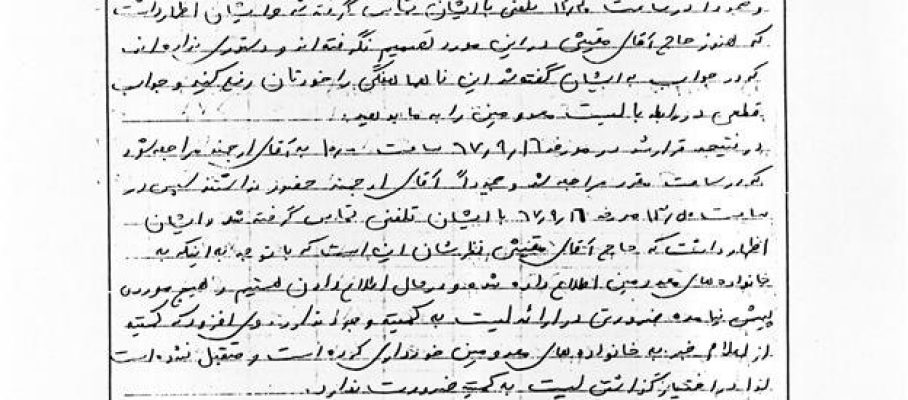 و مجدداً در ساعت ۱۲/۳۰ تلفنی با ایشان تماس گرفته شد و ایشان اظهار داشت
که هنوز حاج آقای مقیسی در این مورد تصمیم نگرفته‌اند و دستوری نداده‌اند
که در جواب به ایشان گفته شد این ناهماهنگی را خودتان رفع کنید و جواب
قطعی در رابطه با لیست معدومین را به ما بدهید.
در نتیجه قرار شد در مورخه ۶۷/۹/۱۶ ساعت ۱۰/۰۰ به آقای ارجمند مراجعه شود
که در ساعت مقرر مراجعه شد و مجدداً آقای ارجمند حضور نداشتند سپس در
ساعت مورخه ۶۷/۹/۱۶ با ایشان تلفنی تماس گرفته شد و ایشان
اظهار داشت که حاج آقای مقیسی نظرشان این است که با توجه به اینکه به
خانواده‌های معدومین اطلاع داده شده و در حال اطلاع دادن هستیم و هیچ موردی
پیش نیامده ضرورتی در ارائه لیست به کمیته وجود ندارد وی افزود که کمیته
از اعلام خبر به خانواده‌های معدومین خودداری کرده است و متقبل نشده است
لذا در اختیار گذاشتن لیست به کمیته ضرورت ندارد.